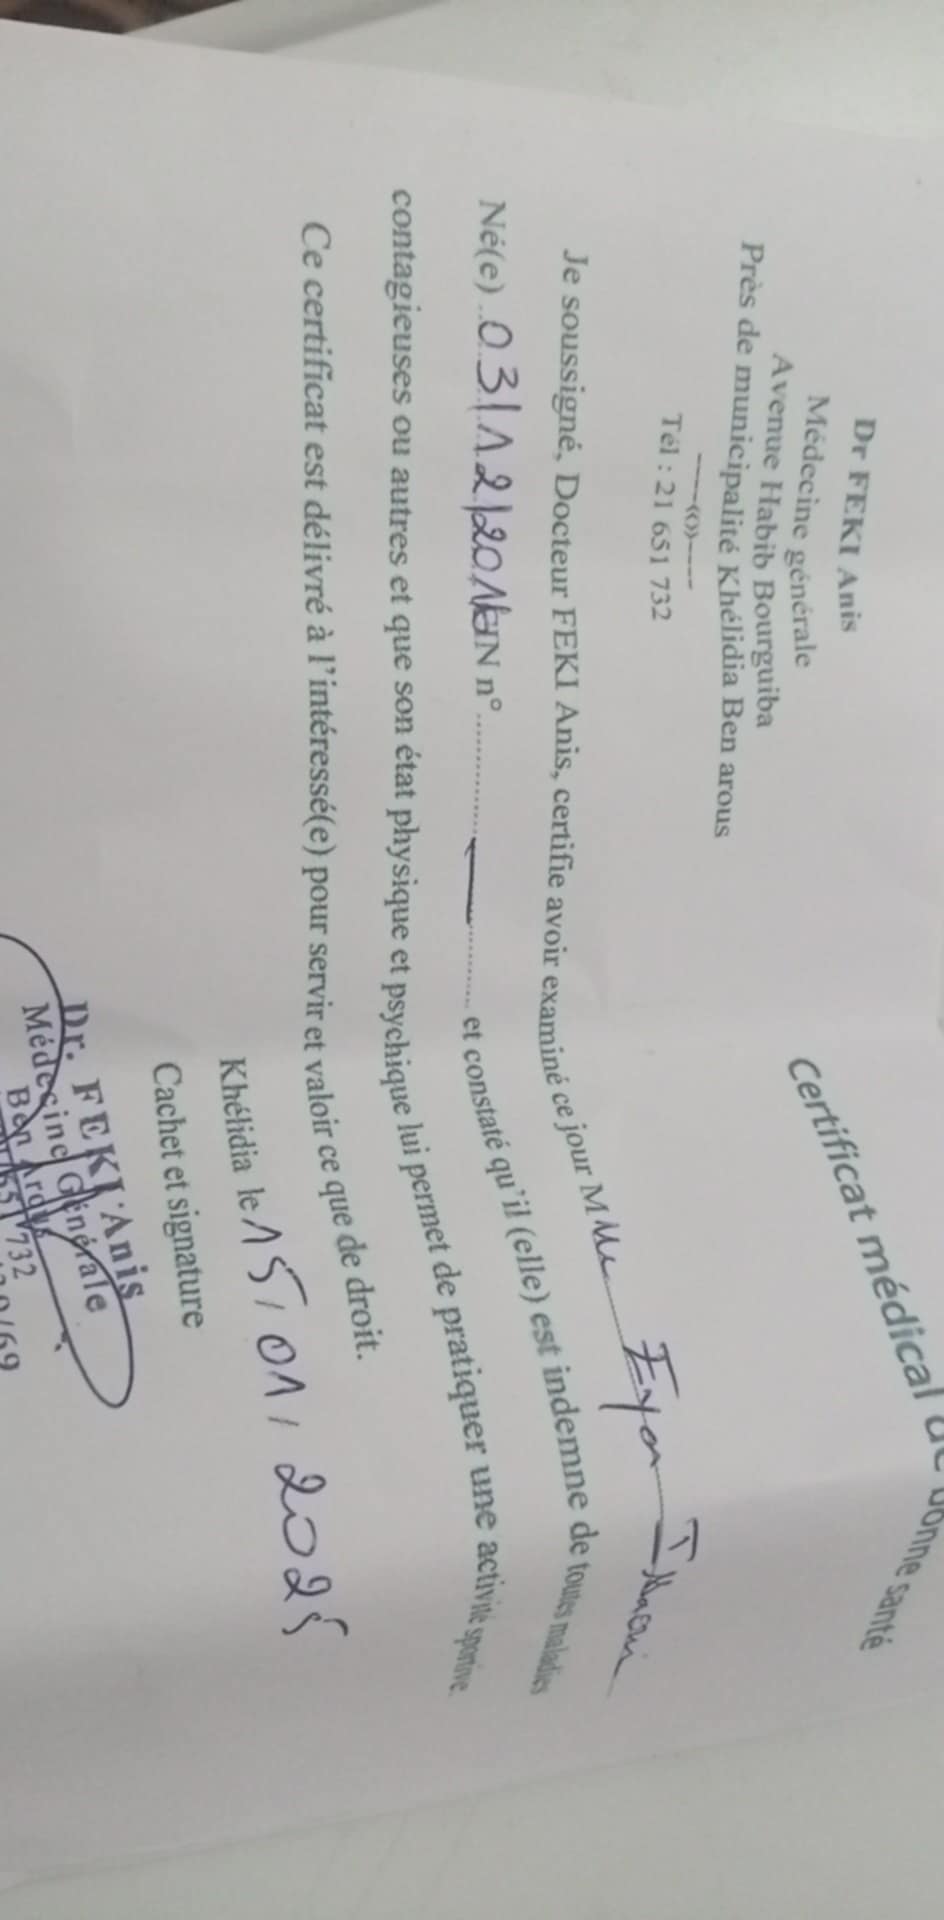 Dr FEKI Anis
Médecine générale
Avenue Habib Bourguiba
Près de municipalité Khélidia Ben arous
----(())----
Tél : 21 651 732
Certificat médical de bonne santé
Je soussigné, Docteur FEKI Anis, certifie avoir examiné ce jour Mlle Eya
Né(e) 03/12/201 IN n° .................... et constaté qu'il (elle) est indemne de toutes maladies
contagieuses ou autres et que son état physique et psychique lui permet de pratiquer une activité sportive.
Ce certificat est délivré à l'intéressé(e) pour servir et valoir ce que de droit.
Khélidia le 15/01/2025
Cachet et signature
Dr. FEKI Anis
Médecine Générale
Ben Arous
651 732